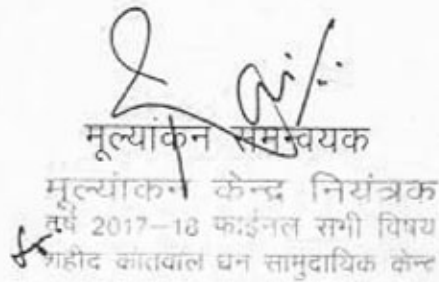 मूल्यांकन समन्वयक
मूल्यांकन केन्द्र नियंत्रक
वर्ष 2017-18 फाईनल सभी विषय
शहीद कोतवाल धन सामुदायिक केन्द्र